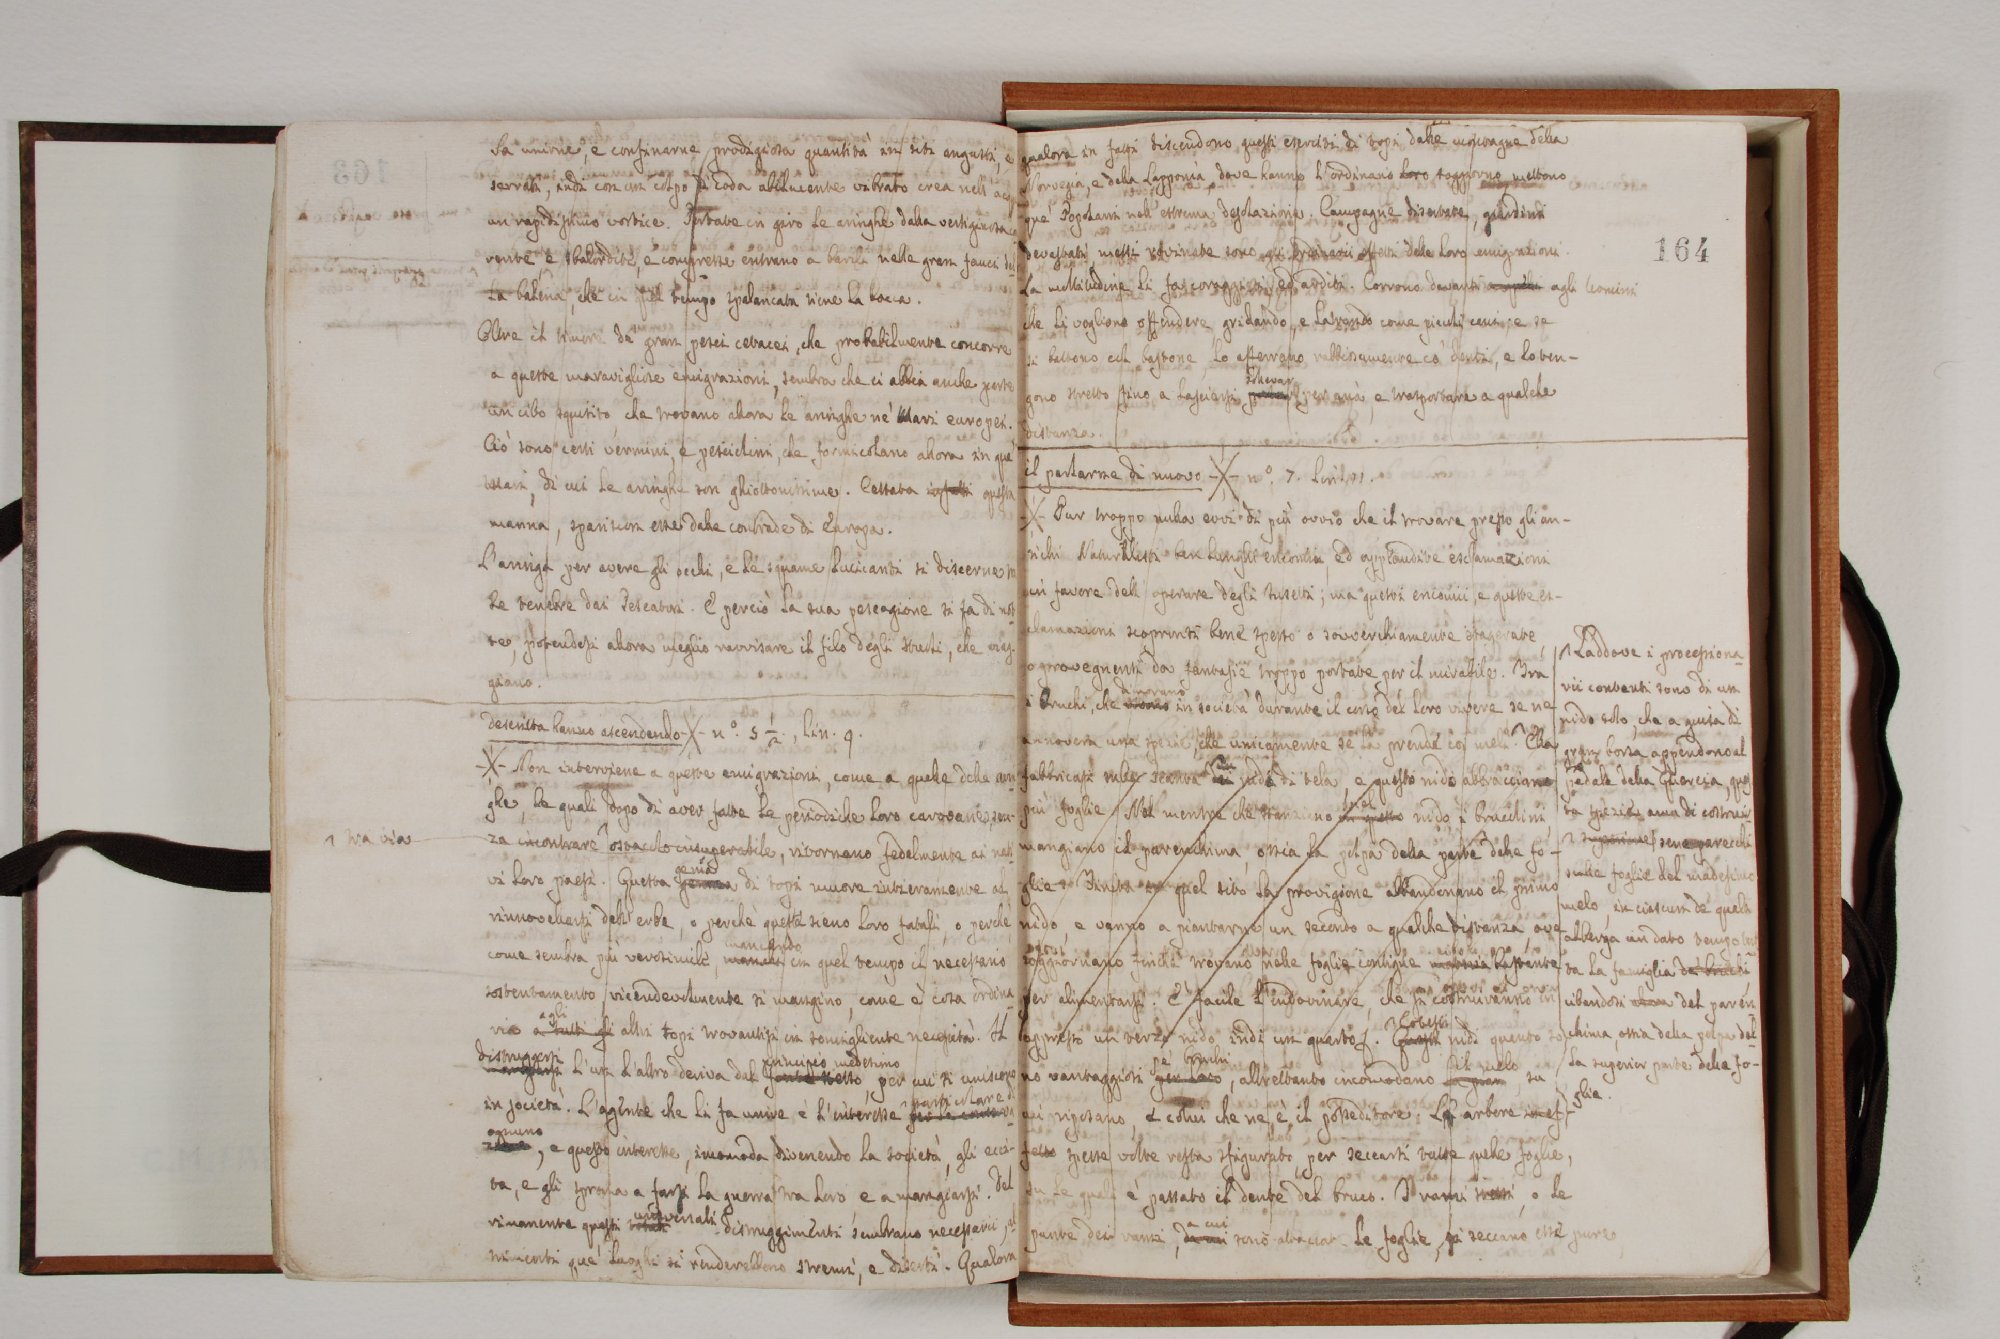 la unione, e confinarne prodigiosa quantità in siti angusti, e
serrati, indi con un colpo di coda abilmente vibrato crea nell'
un rapidissimo vortice. Portate in giro le aringhe dalla vertiginosa
rente, e sbalordite, e compresse entrano a barili nelle gran fauci del
la balena, che in quel tempo spalancata tiene la bocca.
Oltre il timore de' gran pesci cetacei, che probabilmente concorre
a queste maravigliose emigrazioni, sembra che ci abbia anche parte
un cibo squisito, che trovano allora le aringhe ne' Mari europei.
Ciò sono certi vermini, e pesciolini, che formicolano allora in que'
mari, di cui le aringhe son ghiottonissime. Cessata infatti questa
manna, spariscon esse dalle contrade di Europa.
L'aringa per avere gli occhi, e le squame lucicanti si discerne
le tenebre dai Pescatori. E perciò la sua pescagione si fa di not
te, potendosi allora meglio ravvisare il filo degli stretti, che viag
giano.
descritta hanno ascendendo -X- n.° 5 1/2., lin. 9.
-X- Non interviene a queste emigrazioni, come a quelle delle arin
ghe, le quali dopo di aver fatte le periodiche loro carovane, sen-
^ tra via
za incontrare ^ ostacolo insuperabile, ritornano fedelmente ai nati
genia
vi loro paesi. Questa di topi muore intieramente al
rinnovellarsi dell'erbe, o perchè queste sieno loro fatali, o perchè
mancando
come sembra più verosimile, in quel tempo il necessario
sostentamento vicendevolmente si mangino, come è cosa ordina
agli
ria a tutti gli altri topi trovantisi in somigliente necessità. Il
distruggersi principio medesimo
mangiarsi l'un l'altro deriva dal fonte stesso, per cui si uniscono
particolare di
in società. L'agente che li fa unire è l'interesse
ognuno
, e questo interesse, incomoda divenendo la società, gli ecci-
ta, e gli sprona a farsi la guerra tra loro e a mangiarsi. Del
universali
rimanente questi totali distruggimenti sembrano necessarii,
trimenti que' luoghi si renderebbono stremi, e diserti. Qualora
qualora in fatti discendono questi eserciti di topi dalle montagne della
Norvegia, e della Lapponia, dove hanno l'ordinario loro soggiorno, mettono
que' Popolani nell'estrema desolazione. Campagne disertate, giardini
devastati, messi rovinate sono gli ordinarii effetti delle loro emigrazioni.
164
La moltitudine li fa coraggiosi, ed arditi. Corrono davanti agli uomini
che li vogliono offendere gridando, e latrando come piccoli cani; e se
si battono col bastone lo afferrano rabbiosamente co' denti, e lo ten-
sollevar
gono stretto fino a lasciarsi per aria, e trasportare a qualche
distanza.
il parlarne di nuovo -X- n.° 7. lin. 21.
-X- Pur troppo nulla evvi di più ovvio che il trovare presso gli an-
tichi Naturalisti ben lunghi encomii, ed applaudite esclamazioni
in favore dell'operare degli Insetti; ma questi encomii, e queste es-
clamazioni scoprinsi bene spesso o sovverchiamente esagerate
o provegnenti da fantasie troppo portate per il mirabile. Tra
dimorano
i Bruchi, che vivono in società durante il corso del loro vivere se ne
annovera una spezie, che unicamente se la prende coi meli. ^ Ella
fabbricasi nidi di tela, e questo nido abbraccia
più foglie. Nel mentre che stanziano in questo nido i brucolini
mangiano il parenchima, ossia la polpa della parte delle fo-
glie. Finita in quel sito la provigione abbandonano il primo
nido, e vanno a piantarne un secondo a qualche distanza ove
soggiornano finchè trovano nelle foglie contigue materia bastante
per alimentarsi. È facile l'indovinare, che si costruiranno in
^ Cotesti
appresso un terzo nido, indi un quarto &. Questi nidi quanto so
pe' bruchi il melo
no vantaggiosi per loro, altrettanto incomodano , su
cui riposano, e colui che ne è il posseditore. L'arbore in ef-
fetto spesse volte resta sfigurato, per seccarsi tutte quelle foglie,
su le quali è passato il dente del bruco. I rami stessi, o le
a cui
punte dei rami, da cui sono attaccate le foglie, si seccano esse pure
^ Laddove i processiona-
rii contenti sono di un
nido solo, che a guisa di
gran borsa appendono al
pedale della Quercia, que
sta spezie ama di costruir
sene parecchi
sulle foglie del medesimo
melo, in ciascun de' quali
alberga un dato tempo tut
ta la famiglia de' bruchi
cibandosi del paren
chima, ossia della polpa del
la superior parte delle fo-
glie.